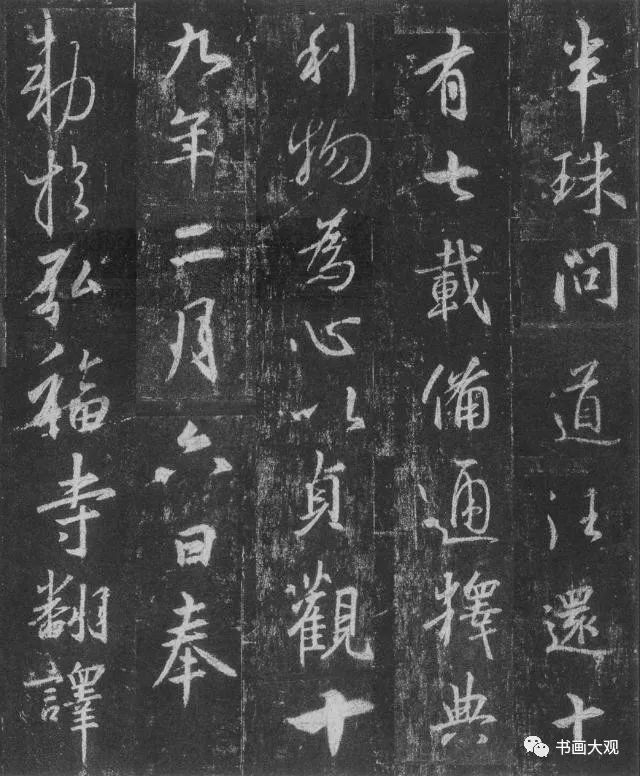 半珠問道往還十
有七載備通釋典
利物為心以貞觀十
九年二月六日奉
勅於弘福寺翻譯
书画大观